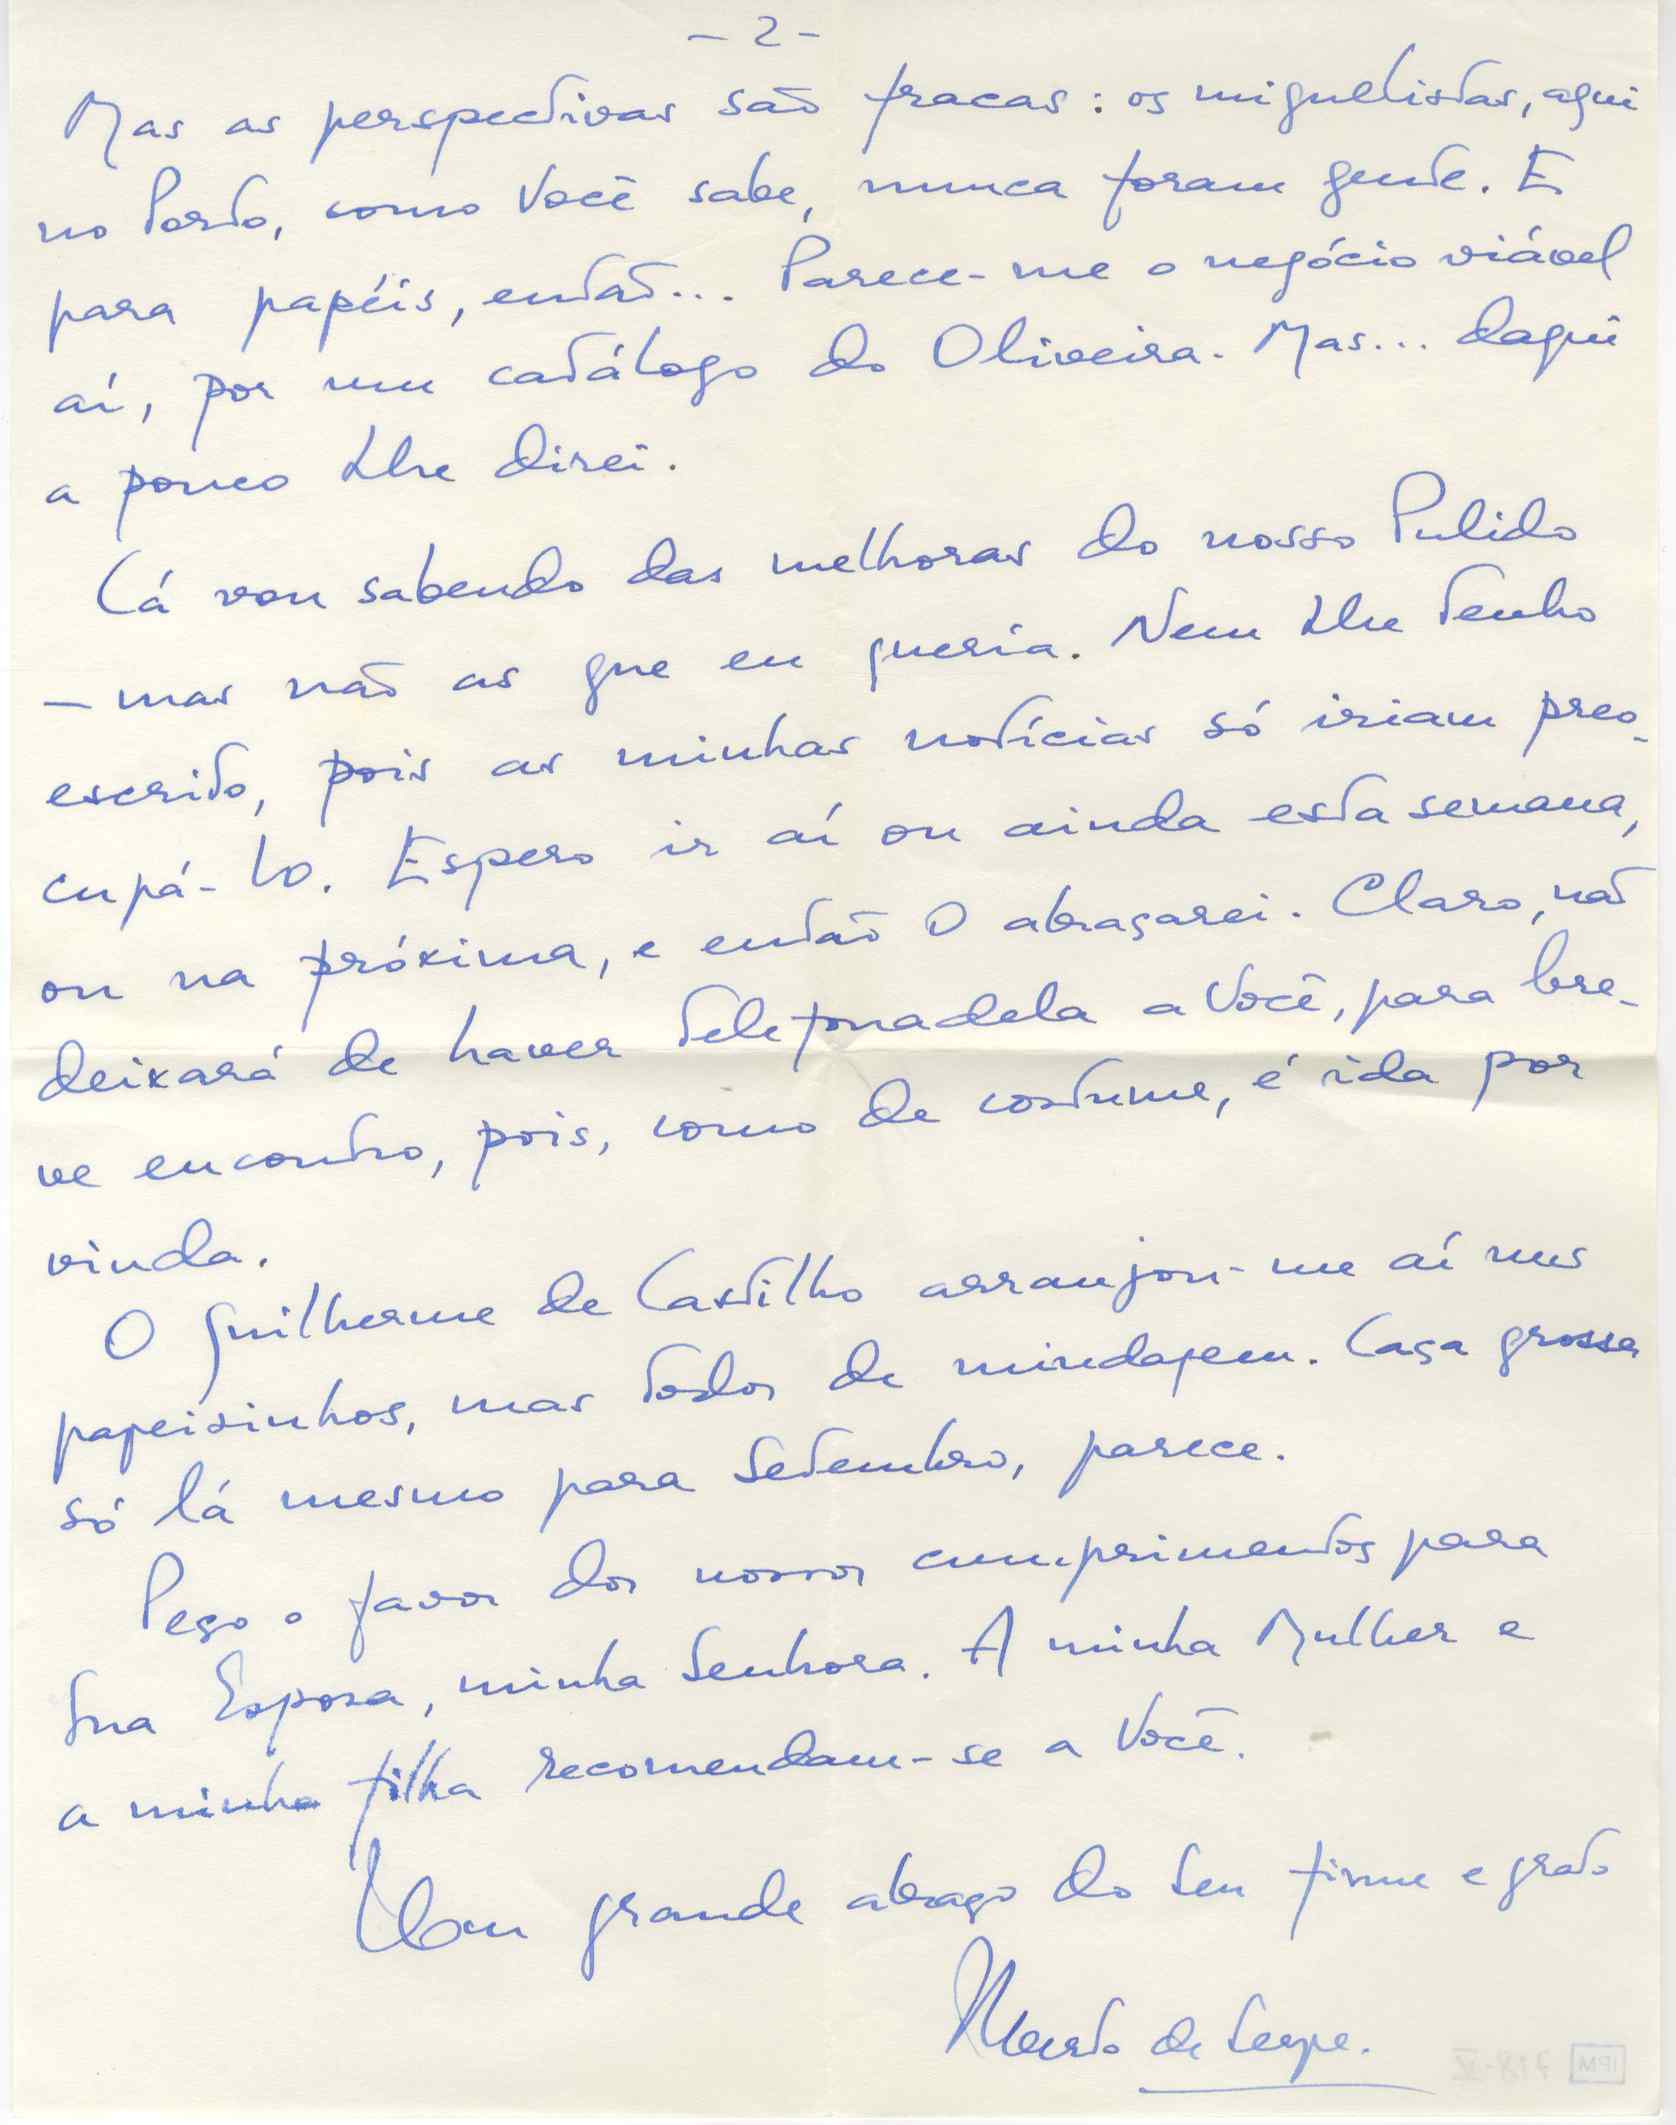 - 2 -
Mas as perspectivas são fracas: os miguelistas, aqui
no Porto, como Você sabe, nunca foram gente. E
para papéis, então... Parece-me o negócio viável
aí, por um catálogo do Oliveira. Mas... daqui
a pouco Lhe direi.
Cá vou sabendo das melhoras do nosso Pulido
- mas não as que eu queria. Nem Lhe tenho
escrito, pois as minhas notícias só iriam preo-
cupá-lO. Espero ir aí ou ainda esta semana,
ou na próxima, e então O abraçarei. Claro, não
deixará de haver telefonadela a Você, para bre-
ve encontro, pois, como de costume, é ida por
vinda.
O Guilherme de Castilho arranjou-me aí uns
papeisinhos, mas todos de miudagem. Caça grossa
só lá mesmo para Setembro, parece.
Peço o favor dos nossos cumprimentos para
Sua Esposa, minha Senhora. A minha Mulher e
a minha filha recomendam-se a Você.
Um grande abraço do Seu firme e grato
de
IPM 718-V